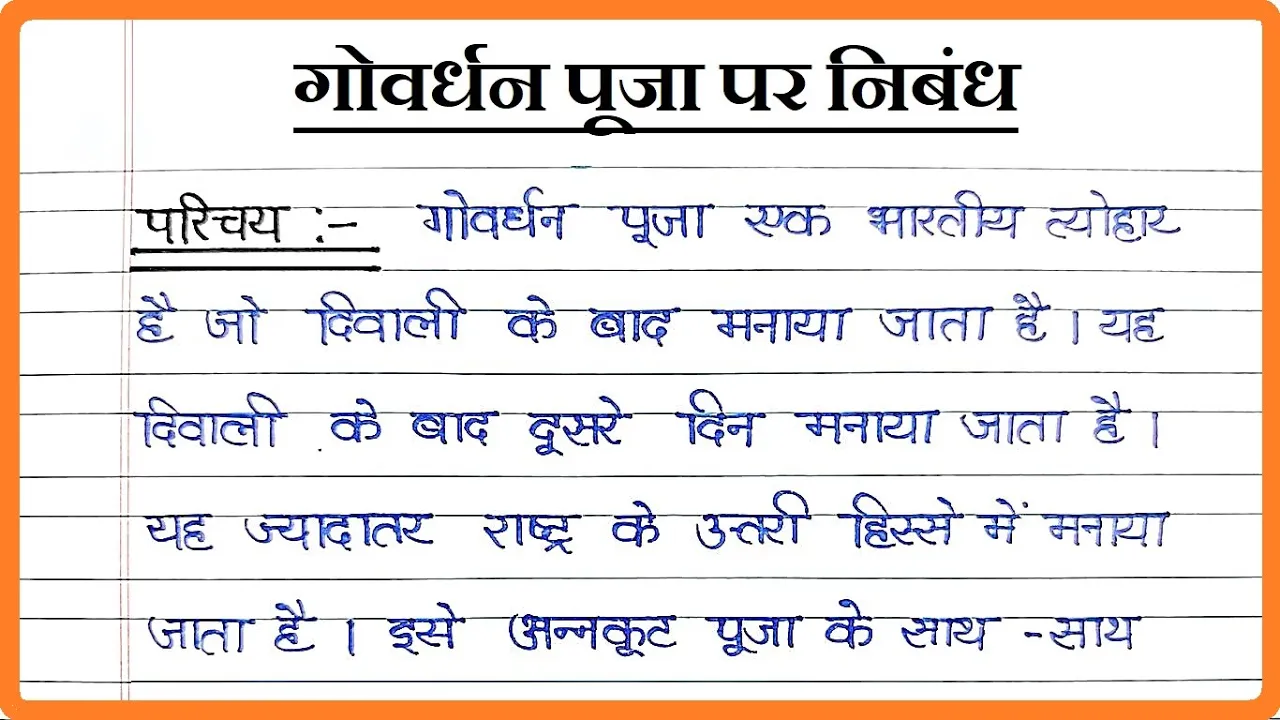 गोवर्धन पूजा पर निबंध
परिचय :- गोवर्धन पूजा एक भारतीय त्योहार
है जो दिवाली के बाद मनाया जाता है। यह
दिवाली के बाद दूसरे दिन मनाया जाता है।
यह ज्यादातर राष्ट्र के उत्तरी हिस्से में मनाया
जाता है। इसे अन्नकूट पूजा के साथ -साथ